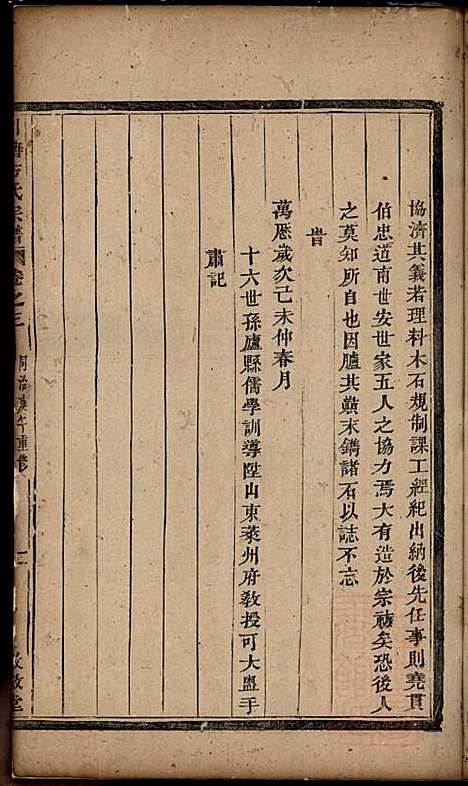 協濟其義若理料木石規制課工經紀出納後先任事則堯貫
伯忠道南世安世家五人之協力焉大有造於宗祊矣恐後人
之莫知所自也因臚其顛末鐫諸石以誌不忘
旹
萬歷歲次己未仲春月
十六世孫廬縣儒學訓導陞山東萊州府敎授可大盥手
肅記
方氏宗譜 卷之三 同治庚午重修 二 敦敘堂